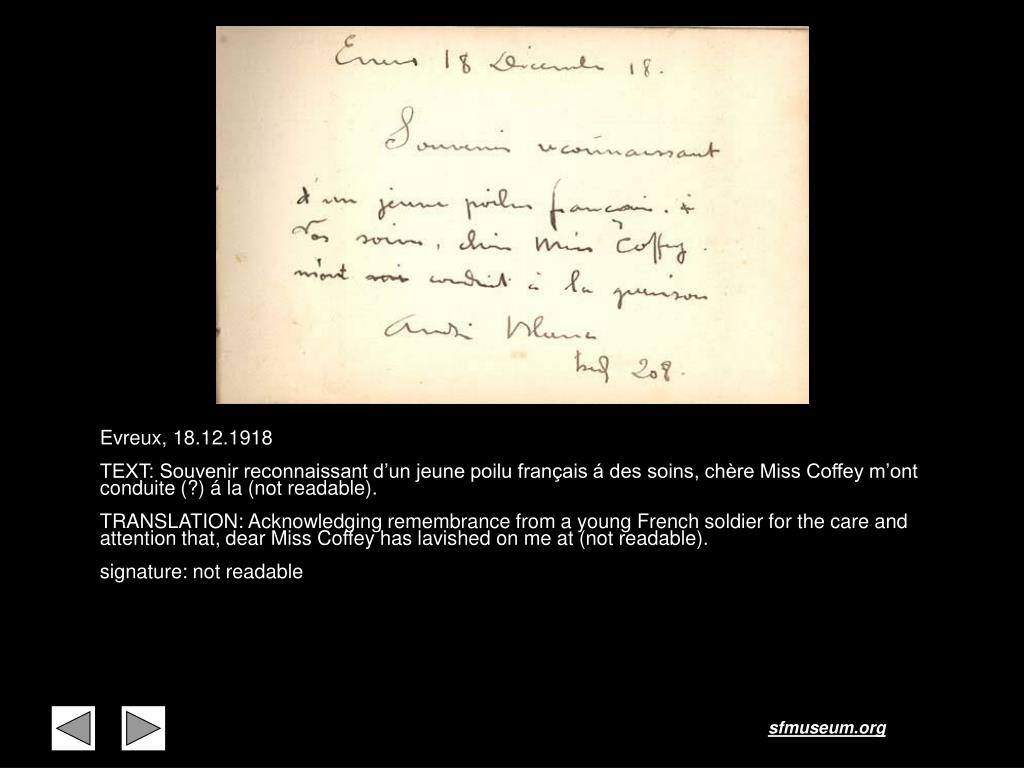 Evreux 18 Décembre 18.
Souvenir reconnaissant
d'un jeune poilu français.
Vos soins, chère Miss Coffey.
m'ont conduit à la guérison
André
208.
Evreux, 18.12.1918
TEXT: Souvenir reconnaissant d’un jeune poilu français á des soins, chère Miss Coffey m’ont
conduite (?) á la (not readable).
TRANSLATION: Acknowledging remembrance from a young French soldier for the care and
attention that, dear Miss Coffey has lavished on me at (not readable).
signature: not readable
sfmuseum.org